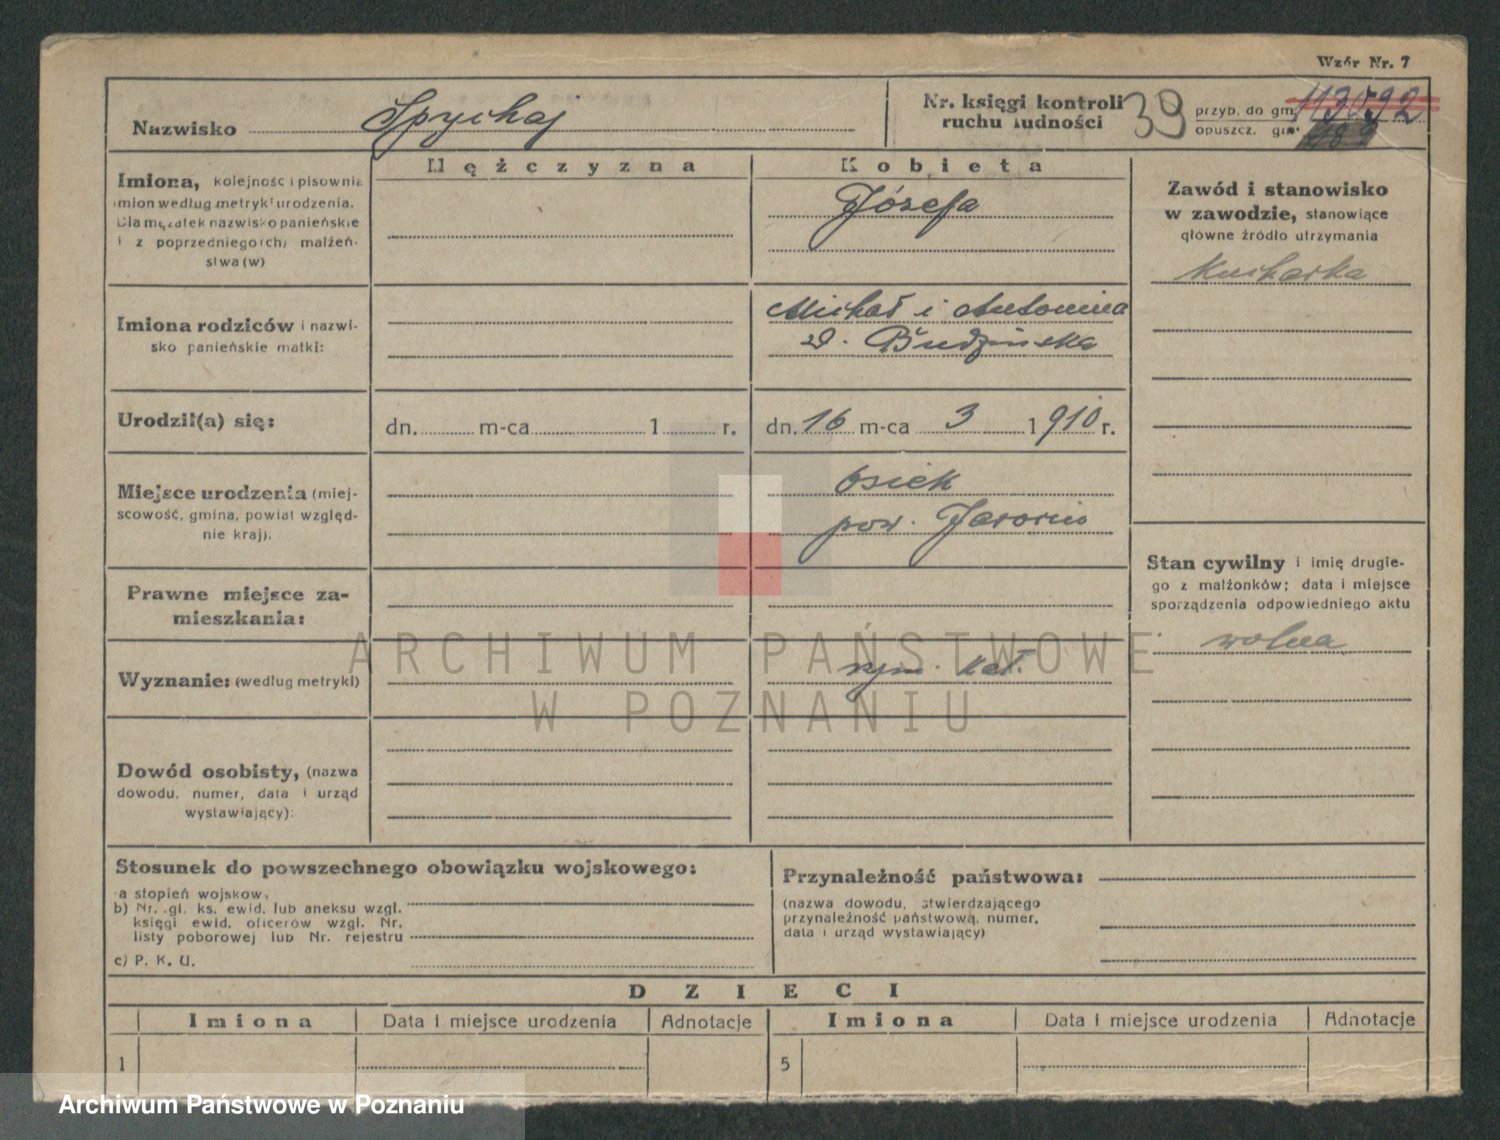 Wzór Nr. 7
Nazwisko Spychaj
Nr. księgi kontroli ruchu ludności
39
przyb. do gm. 113592
opuszcz. gm.
Mężczyzna
Kobieta
Imiona, kolejność i pisownia
imion według metryki urodzenia.
Dla mężatek nazwisko panieńskie
i z poprzedniego(ch) małżeń-
stwa(w)
Józefa
Zawód i stanowisko
w zawodzie, stanowiące
główne źródło utrzymania
Kucharka
Imiona rodziców i nazwi-
sko panieńskie matki:
Michał i Antonina
d. Budzińska
Urodził(a) się:
dn. m-ca 1 r.
dn. 16 m-ca 3 1910 r.
Miejsce urodzenia (miej-
scowość, gmina, powiat względ-
nie kraj):
Osiek
pow. Jarocin
Stan cywilny i imię drugie-
go z małżonków; data i miejsce
sporządzenia odpowiedniego aktu
wolna
Prawne miejsce za-
mieszkania:
Wyznanie: (według metryki)
rzym. kat.
ARCHIWUM PAŃSTWOWE
W POZNANIU
Dowód osobisty, (nazwa
dowodu, numer, data i urząd
wystawiający):
Stosunek do powszechnego obowiązku wojskowego:
a stopień wojskow.
b) Nr. gl. ks. ewid. lub aneksu wzgl.
księgi ewid. oficerów wzgl. Nr.
listy poborowej lub Nr. rejestru
c) P. K. U.
Przynależność państwowa:
(nazwa dowodu, stwierdzającego
przynależność państwową, numer,
data i urząd wystawiający)
DZIECI
Imiona Data i miejsce urodzenia Adnotacje Imiona Data i miejsce urodzenia Adnotacje
1 5
Archiwum Państwowe w Poznaniu